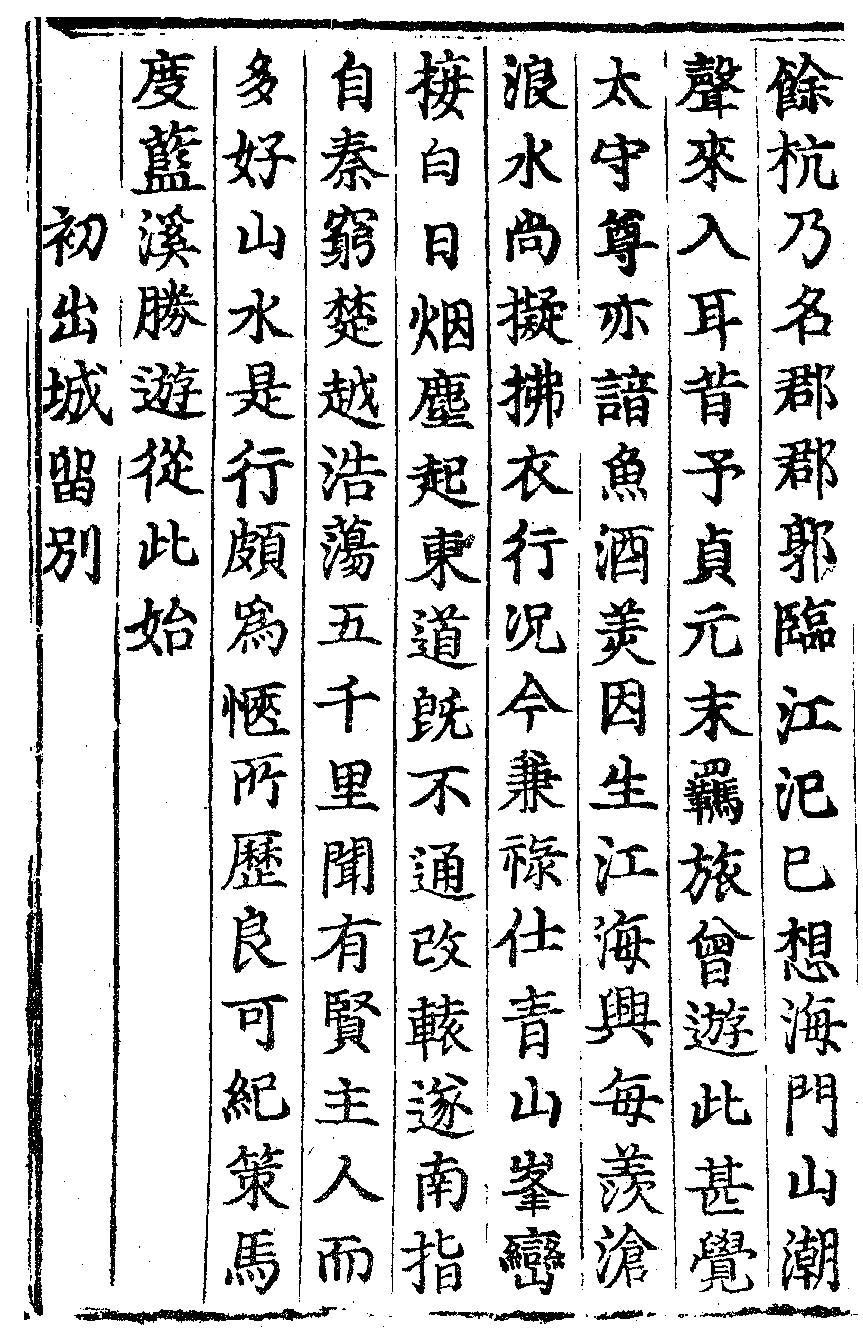 餘杭乃名郡郡郭臨江汜已想海門山潮
聲來入耳昔予貞元末羈旅曾遊此甚覺
太守尊亦諳魚酒羙因生江海興每羨滄
浪水尚擬拂衣行况今兼祿仕青山峯巒
接白日烟塵起東道旣不通改轅遂南指
自秦窮楚越浩蕩五千里聞有賢主人而
多好山水是行頗爲愜所歷良可紀策馬
度藍溪勝遊從此始
初出城留別